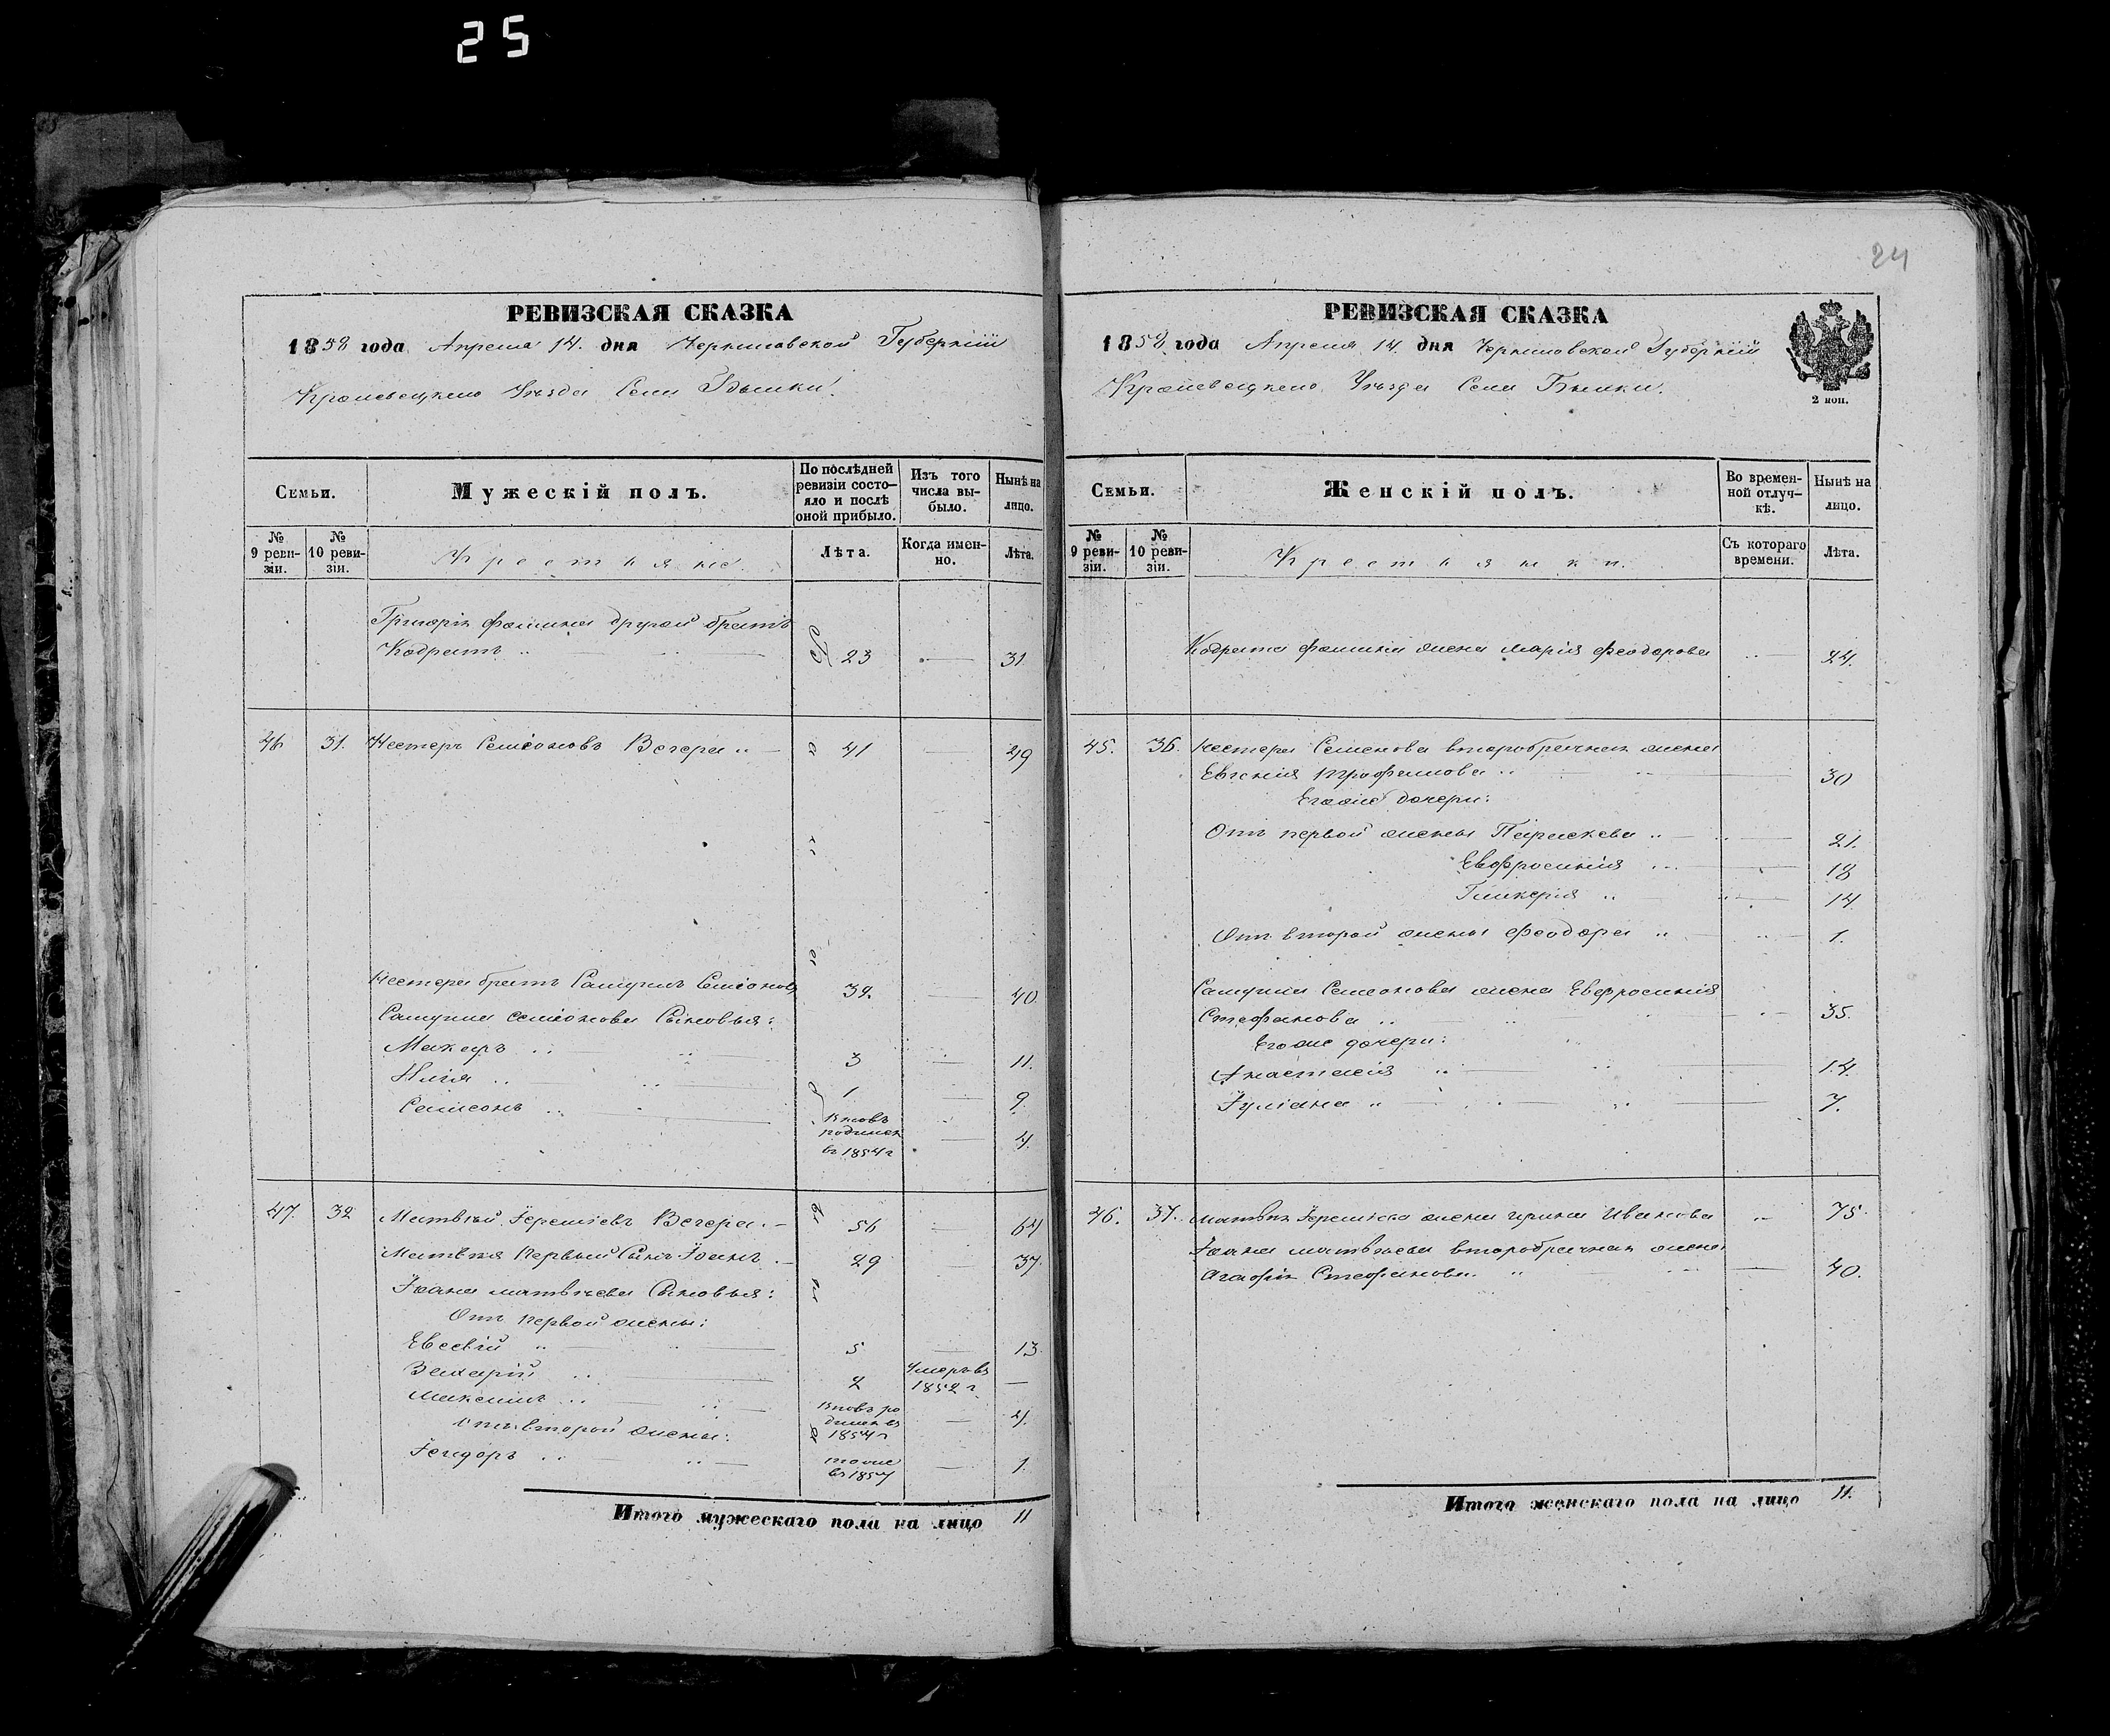 25
РЕВИЗСКАЯ СКАЗКА
1858 года Апреля 14. дня Черниговской Губерніи
Кролевецкого Уезда Села
МужескІй полъ.
Семьи.
По послѣдней ревизіи состо-
яло и послѣ
оной прибыло.
Изъ того
числа вы-
было.
Нынѣ на
лицо.
№
9 реви-
зіи.
№
10 реви-
зіи.
Крестьяне
Лѣта.
Когда имен-
но.
Лѣта.
Григорія Фомина другой братъ
Кодратъ 23 31
46 31. Нестеръ Семіоновъ Вечера 41 49
Нестера братъ Самуилъ Семіоновъ 32. 40
Самуила Семіонова Сыновья:
Макаръ 3 11.
Илія 1 9
Семіонъ Вновь
родился
въ 1854 г 4.
47. 32 Матвѣй Іереміевъ Вечера 56 64
Матвѣя Первый Сынъ Іоанъ 29 37.
Іоана Матвѣева Сыновья:
Отъ первой жены:
Евсевій 5 13.
Захарій 2 Умеръ въ
1852 г
Максимъ Вновь ро
дился въ
1854 г 4.
Отъ второй жены:
тоже
въ 1857 1.
Итого мужескаго пола на лицо 11
24
РЕВИЗСКАЯ СКАЗКА
1858 года Апреля 14. дня Черниговской Губерніи
Кролевецкого Уезда Села
2 коп.
Семьи.
Женскій полъ.
Во времен-
ной отлуч-
кѣ.
Нынѣ на
лицо.
№
9 реви-
зіи.
№
10 реви-
зіи.
Крестьянки.
Съ котораго
времени.
Лѣта.
Кодрата Фомина жена Марія Феодорова 24.
45. 36. Нестера Семенова второбрачная жена
Евгенія Трофимова 30
Егоже дочери:
Отъ первой жены Параскева 21.
Евфросинія 18
Гликерія 14
Отъ второй жены Феодора 1.
Самуила Семіонова жена Евфросинія
Стефанова 35.
Егоже дочери:
Анастасія 14.
Іуліана 7.
46. 37. Матвѣя Іереміева жена Ирина Иванова 75.
Іоана Матвѣева второбрачная жена
Агафія Стефанова 40.
Итого женскаго пола на лицо 11.